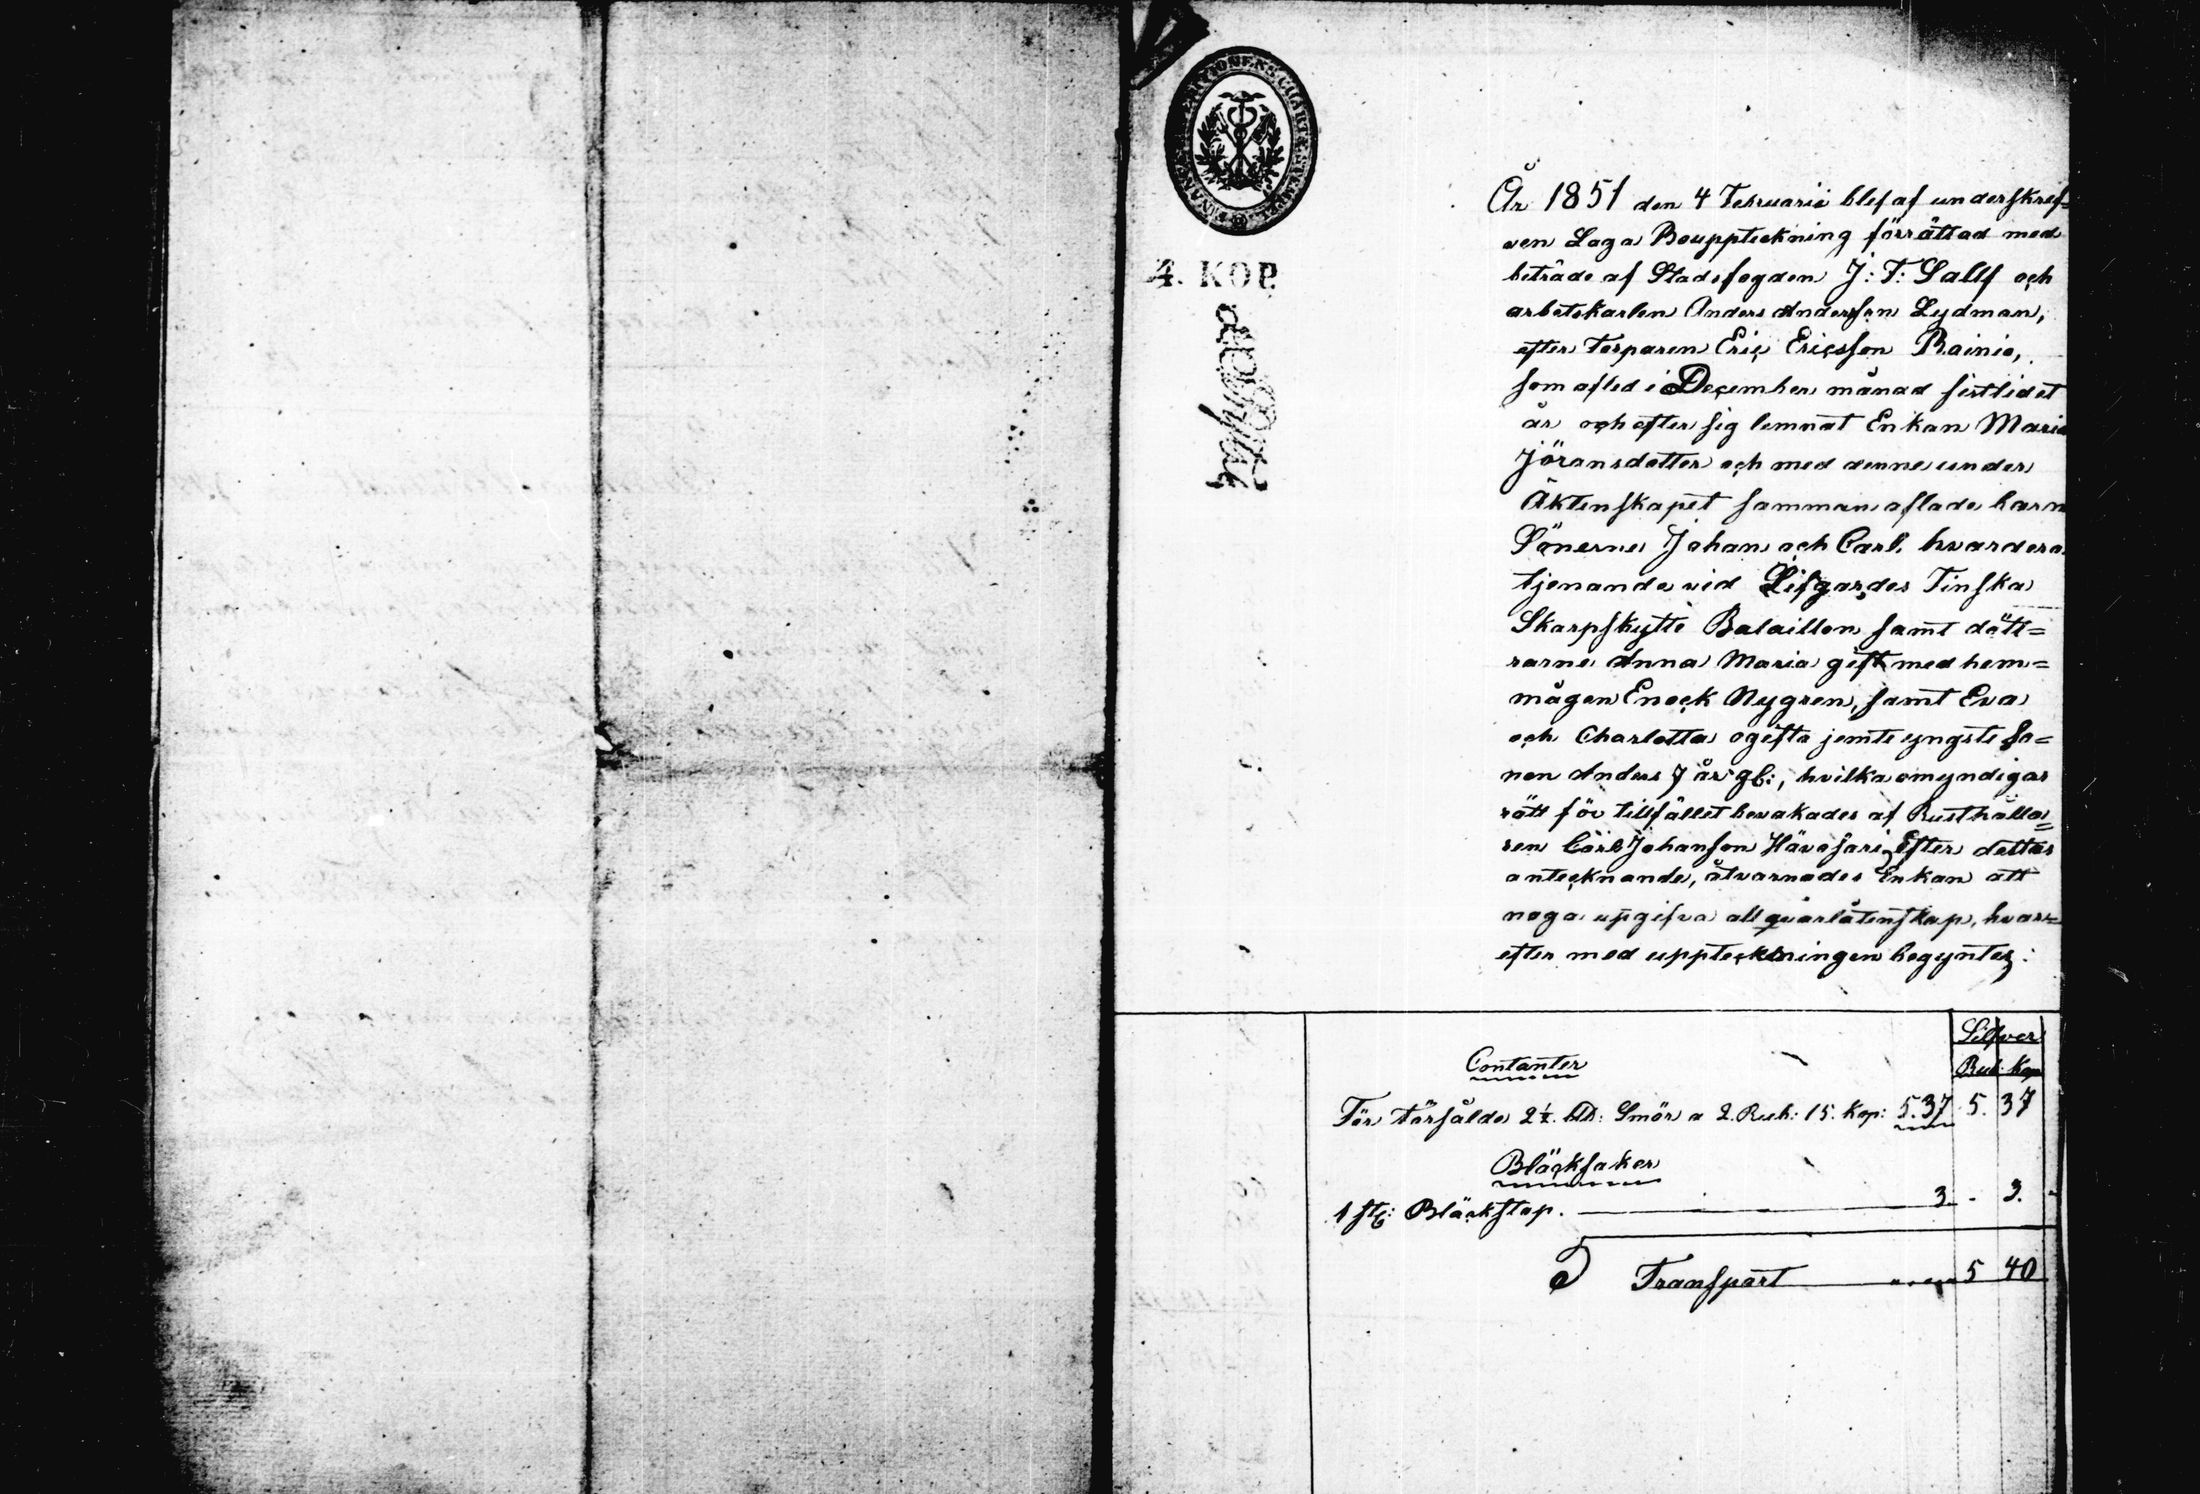 FINANS EXPEDITIONENS CHARTÆ STEMPEL
4. KOP.
År 1851 den 4 Februarii blef af underskref=
ven Laga Bouppteckning förrättad med
beträde af Stadsfogden J: F: Sallf och
arbetskarlen Anders Andersson Lydman,
efter Torparen Eric Ericsson Rainio,
som afled i December månad sistlidet
år och efter sig lemnat Enkan Maria
Jöransdotter och med denne under
Äktenskapet sammanaflade barn
Sönerne Johan och Carl, hvardera
tjenande vid Lifgardes Finska
Skarpskytte Bataillon samt dött=
rarne Anna Maria gift med hem=
mågen Enock Nygren, samt Eva
och Charlotta ogifta jemte yngste so=
nen Anders 7 år gl:, hvilka omyndigas
rätt för tillfället bevakades af Rusthålla=
ren Carl Johanson Häväsari, Efter dettas
antecknande, åtvarnades Enkan att
noga upgifva all qvarlåtenskap, hvar=
efter med uppteckningen begyntes:
Silfver
Contanter
Rub. Kop
För försålde 2½ ltb: Smör a 2 Rub: 15. Kop: 5.37 5. 37
Bläcksaker
1 st: Bläckstop. 3. - 3.
Transport 5 40